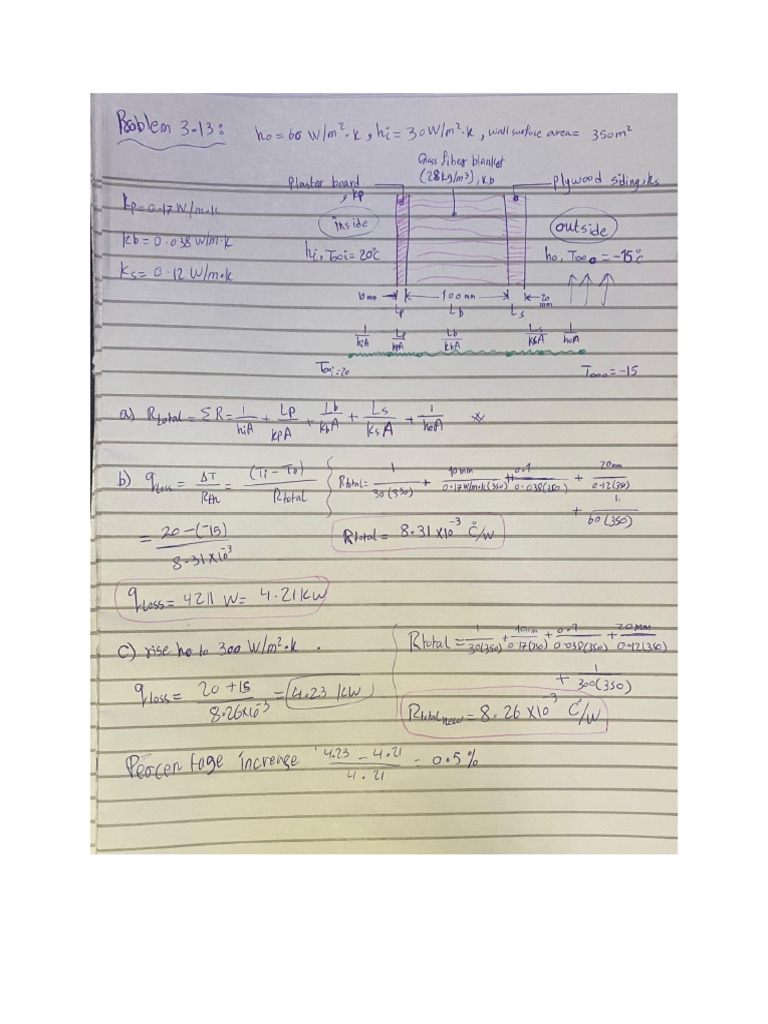 Problem 3.13: ho = 60 W/m².k, hi = 30 W/m².k, wall surface area = 350m²
Glass fiber blanket
(28kg/m³), kb
Plaster board
, kp
plywood siding, ks
kp = 0.17 W/m.k
inside
outside
kb = 0.038 W/m.k
hi, T∞i = 20°C
ho, T∞o = -15°C
ks = 0.12 W/m.k
10mm
100mm
20
mm
Lp
Lb
Ls
1/hiA Lp/kpA Lb/kbA Ls/ksA 1/hoA
T∞i = 20
T∞o = -15
a) Rtotal = ΣR = 1/hiA + Lp/kpA + Lb/kbA + Ls/ksA + 1/hoA
b) qloss = ΔT/Rth = (Ti - To)/Rtotal
Rtotal = 1/30(350) + 10mm/0.17W/m.k(350) + 0.1/0.038(350) + 20mm/0.12(350)
+ 1/60(350)
= 20-(-15)/8.31x10⁻³
Rtotal = 8.31x10⁻³ °C/W
qLoss = 4211 W = 4.21kW
c) rise ho to 300 W/m².k.
Rtotal = 1/30(350) + 10mm/0.17(350) + 0.1/0.038(350) + 20mm/0.12(350)
+ 1/300(350)
qLoss = 20+15/8.26x10⁻³ = 4.23 kW
Rtotal new = 8.26 x10⁻³ °C/W
Percentage increase 4.23 - 4.21/4.21 = 0.5%